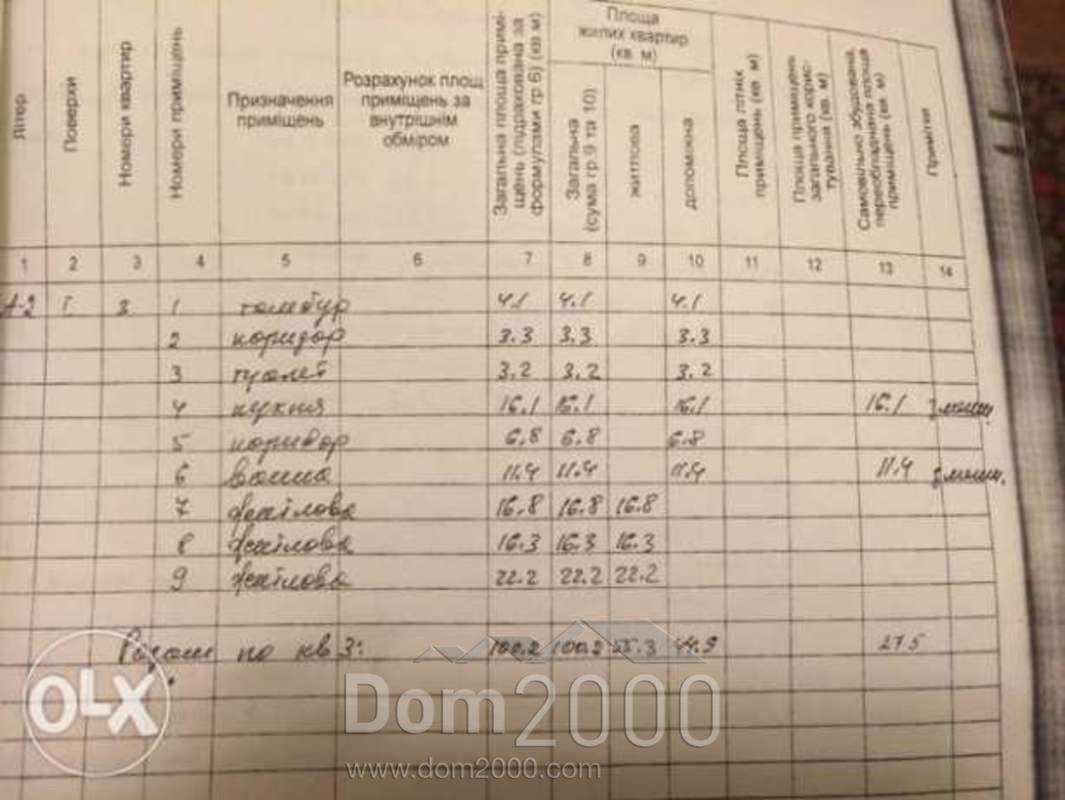 Літер
Поверхи
Номери квартир
Номери приміщень
Призначення приміщень
Розрахунок площ приміщень за внутрішнім обміром
Загальна площа приміщень (підрахована за формулами гр.6) (кв м)
Площа жилих квартир (кв. м)
Загальна (сума гр.9 та 10)
житлова
допоміжна
Площа літніх приміщень (кв. м)
Площа приміщень загального користування (кв. м)
Самовільно збудована, переобладнана площа приміщень (кв. м)
Примітки
1 2 3 4 5 6 7 8 9 10 11 12 13 14
А-2 І 3 1 тамбур 4.1 4.1 4.1
2 коридор 3.3 3.3 3.3
3 туалет 3.2 3.2 3.2
4 кухня 16.1 16.1 16.1 16.1
5 коридор 6.8 6.8 6.8
6 ванна 11.4 11.4 11.4 11.4
7 житлова 16.8 16.8 16.8
8 житлова 16.3 16.3 16.3
9 житлова 22.2 22.2 22.2
Разом по кв 3: 100.2 100.2 55.3 44.9 27.5
OLX
Dom2000
www.dom2000.com